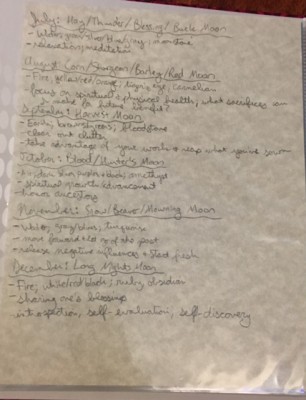 July: Hay/Thunder/Blessing/Buck Moon
- Water, green/silver/blue/gray, moonstone
- relaxation, meditation
August: Corn/Sturgeon/Barley/Red Moon
- Fire, yellow/red/orange, tiger's eye, carnelian
- focus on spiritual + physical health, what sacrifices can
u make for future benefit?
September: Harvest Moon
- Earth, brown/green, bloodstone
- clear out clutter
- take advantage of your work + reap what you've sown
October: Blood/Hunter's Moon
- amethyst
- spiritual growth + advancement
- honor ancestry
November: Snow/Beaver/Mourning Moon
- Water, gray/blue, turquoise
- move forward + let go of the past
- release negative influences + start fresh
December: Long Nights Moon
- Fire, white/red/black; ruby, obsidian
- sharing one's blessings
introspection, self-evaluation, self-discovery